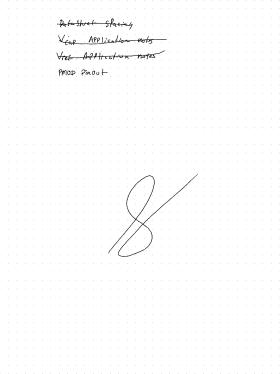 Datasheet spacing
Vcap Application notes
Vref Application notes
PMOD Pinout